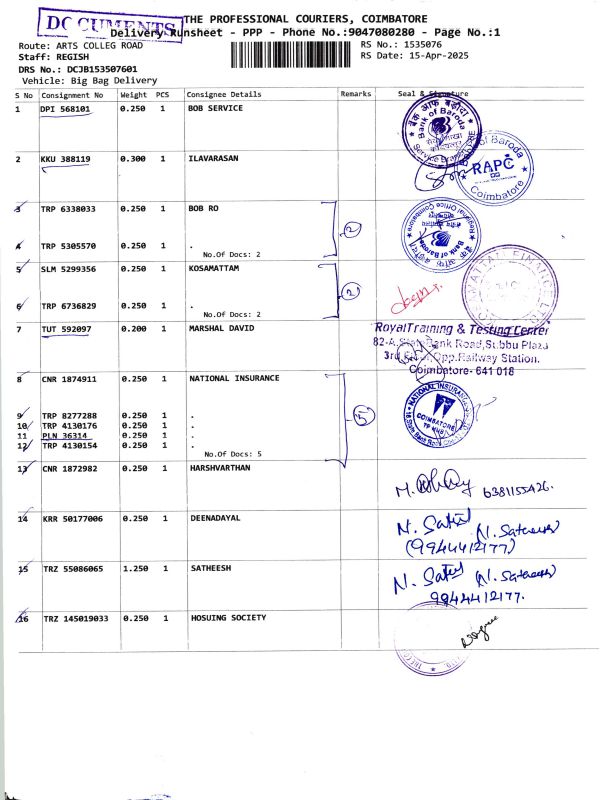 DOCUMENTS
THE PROFESSIONAL COURIERS, COIMBATORE
Delivery Runsheet - PPP - Phone No.:9047080280 - Page No.:1
Route: ARTS COLLEG ROAD
RS No.: 1535076
Staff: REGISH
RS Date: 15-Apr-2025
DRS No.: DCJB153507601
Vehicle: Big Bag Delivery
S No Consignment No Weight PCS Consignee Details Remarks Seal & Signature
1 DPI 568101 0.250 1 BOB SERVICE
बैंक ऑफ़ बड़ौदा
Bank of Baroda
2 KKU 388119 0.300 1 ILAVARASAN
of Baroda
RAPC
Coimbatore
3 TRP 6338033 0.250 1 BOB RO
2
Bank of Baroda
4 TRP 5305570 0.250 1 .
No.Of Docs: 2
5 SLM 5299356 0.250 1 KOSAMATTAM
2
6 TRP 6736829 0.250 1 .
No.Of Docs: 2
7 TUT 592097 0.200 1 MARSHAL DAVID
Royal Training & Testing Center
82-A, State Bank Road, Subbu Plaza
3rd Floor, Opp. Railway Station.
Coimbatore- 641 018
8 CNR 1874911 0.250 1 NATIONAL INSURANCE
5
NATIONAL INSURANCE
COIMBATORE
9 TRP 8277288 0.250 1 .
10 TRP 4130176 0.250 1 .
11 PLN 36314 0.250 1 .
12 TRP 4130154 0.250 1 .
No.Of Docs: 5
13 CNR 1872982 0.250 1 HARSHVARTHAN
6381155426.
14 KRR 50177006 0.250 1 DEENADAYAL
N. Satheesh
(9944412177)
15 TRZ 55086065 1.250 1 SATHEESH
(N. Satheesh)
9944412177.
16 TRZ 145019033 0.250 1 HOSUING SOCIETY